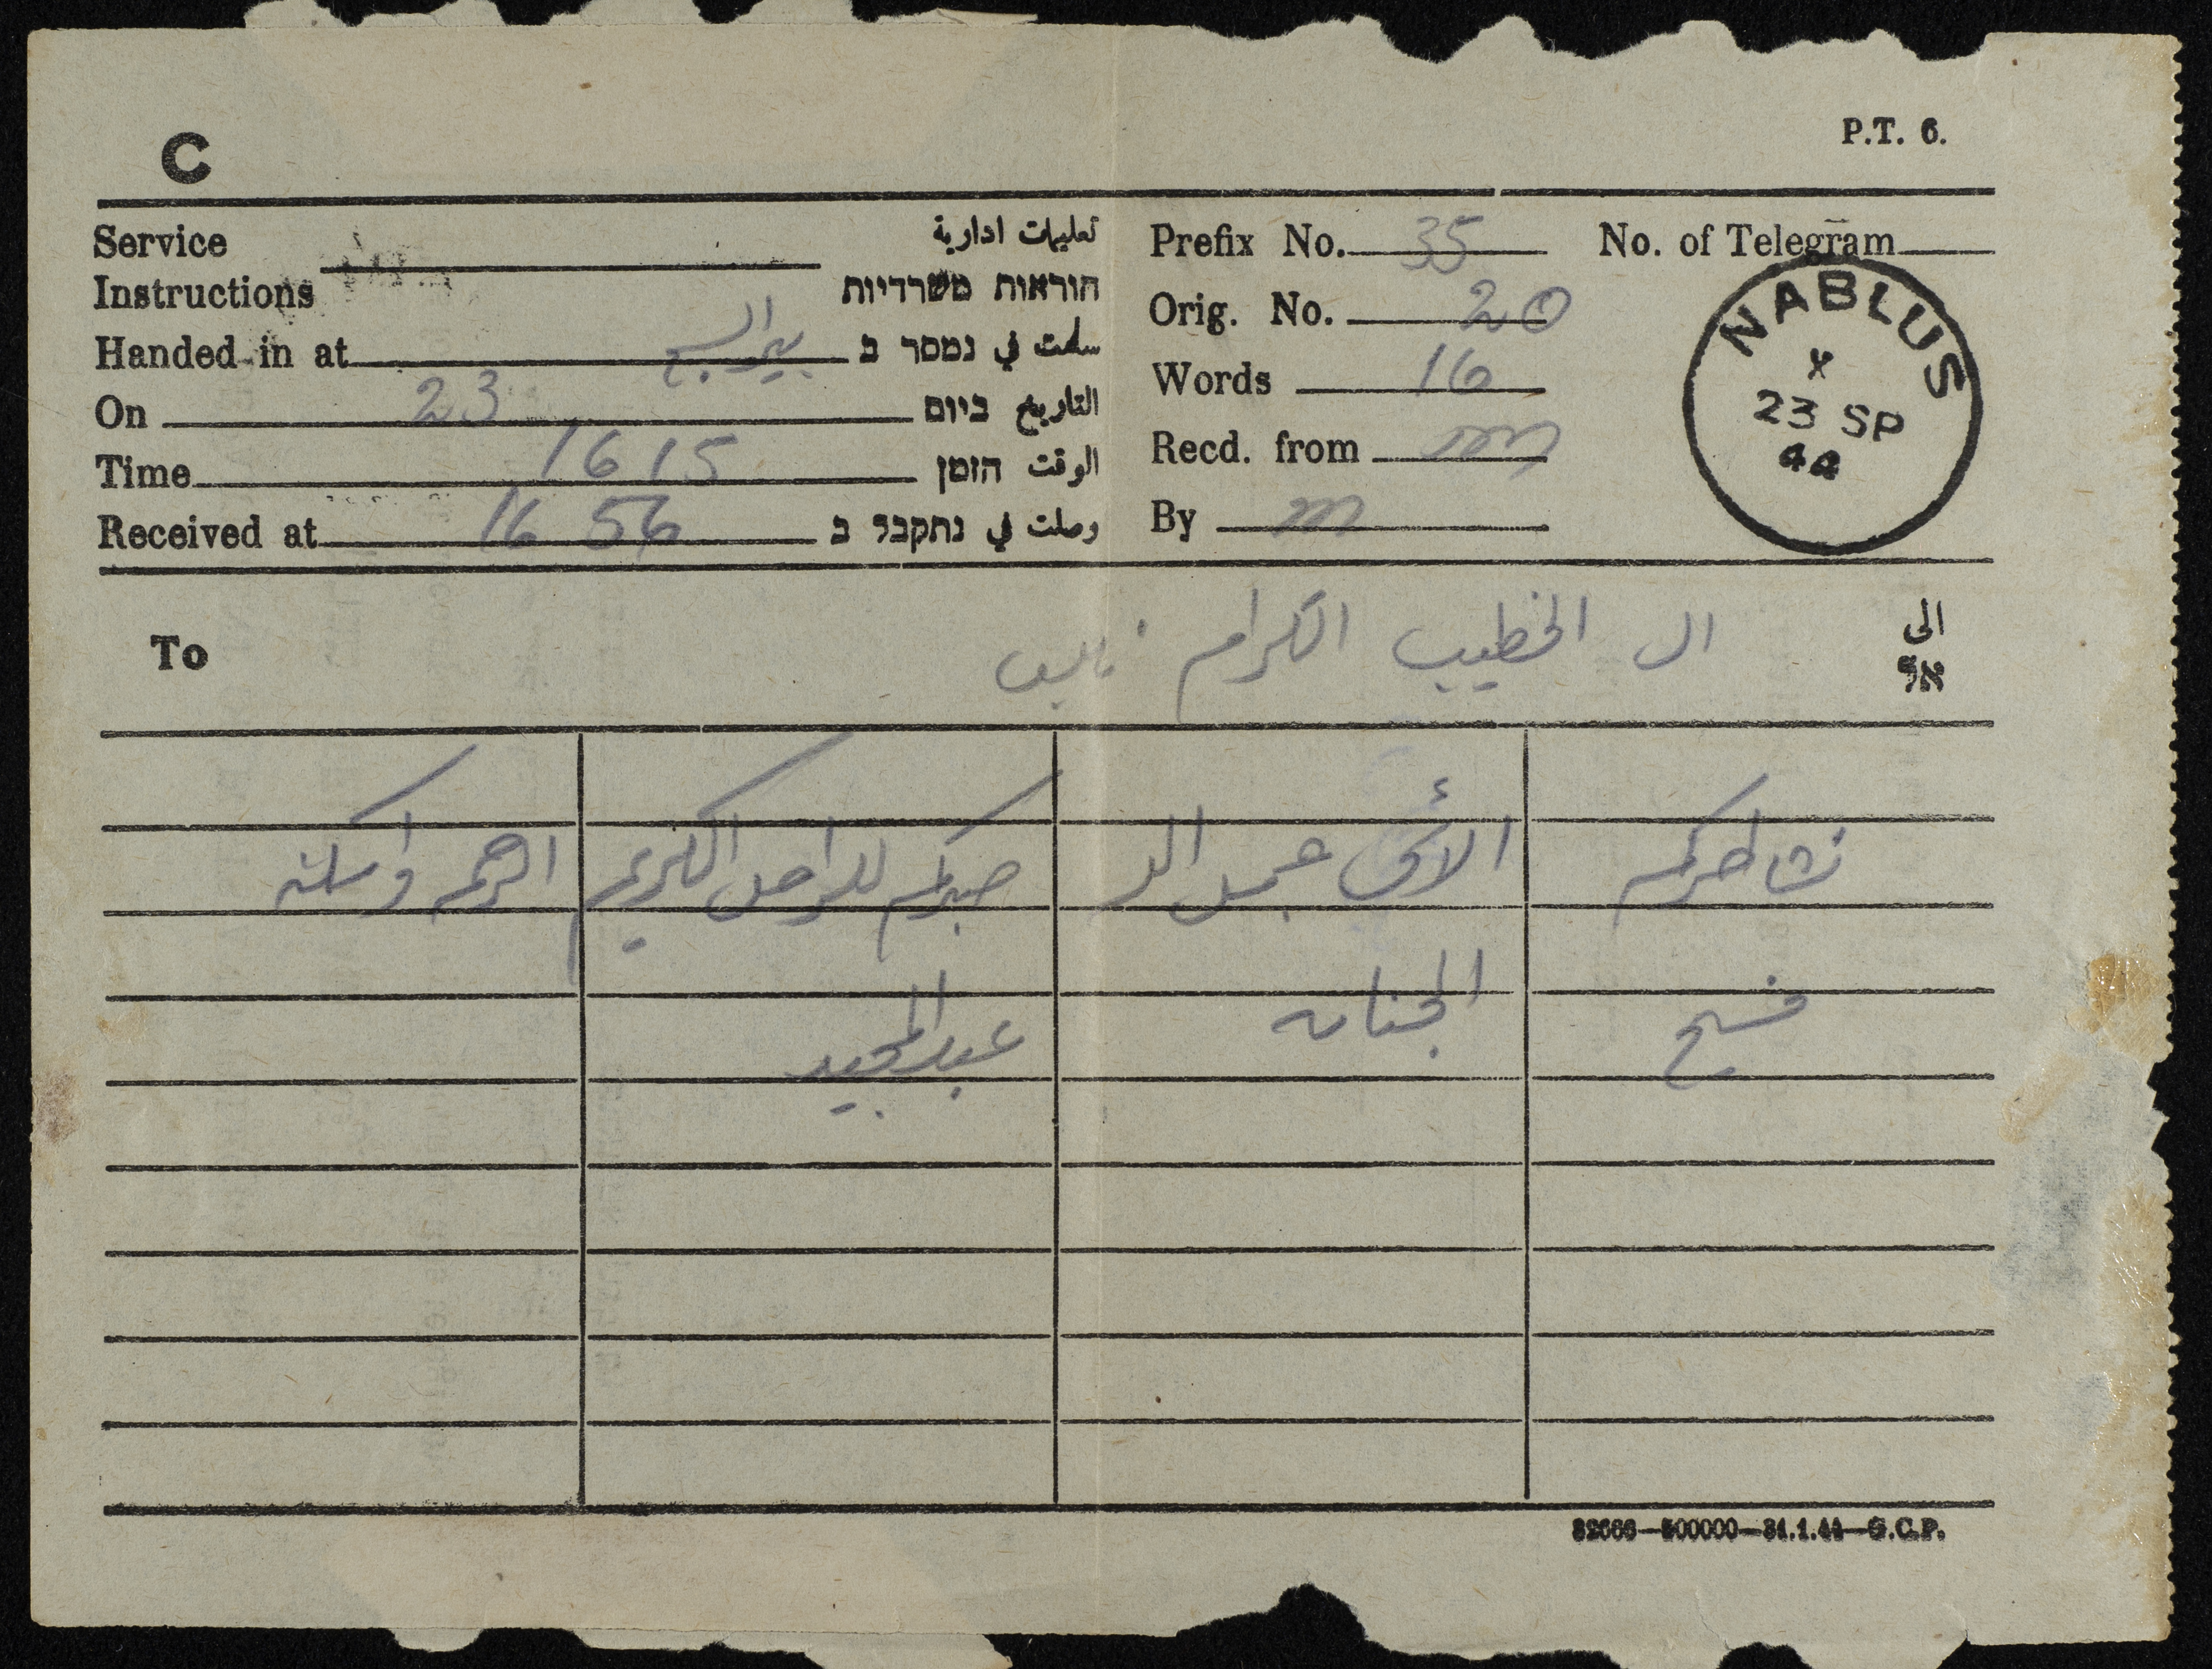 C
P.T. 6.
Service Instructions تعليمات ادارية הוראות משרדיות
Handed in at بير السبع سلمت في נמסר ב
On 23 التاريخ ביום
Time 16 15 الوقت הזמן
Received at 16 56 وصلت في נתקבל ב
Prefix No. 35
No. of Telegram
Orig. No. 20
Words 16
Recd. from m
By m
NABLUS
x
23 SP
44
To ال الخطيب الكرام نابلس الى אל
نشاطركم الأسى جمل الله صبركم للراحل الكريم الرحمة واسكنه
فسيح الجنان عبد المجيد
32666—500000—31.1.44—G.C.P.